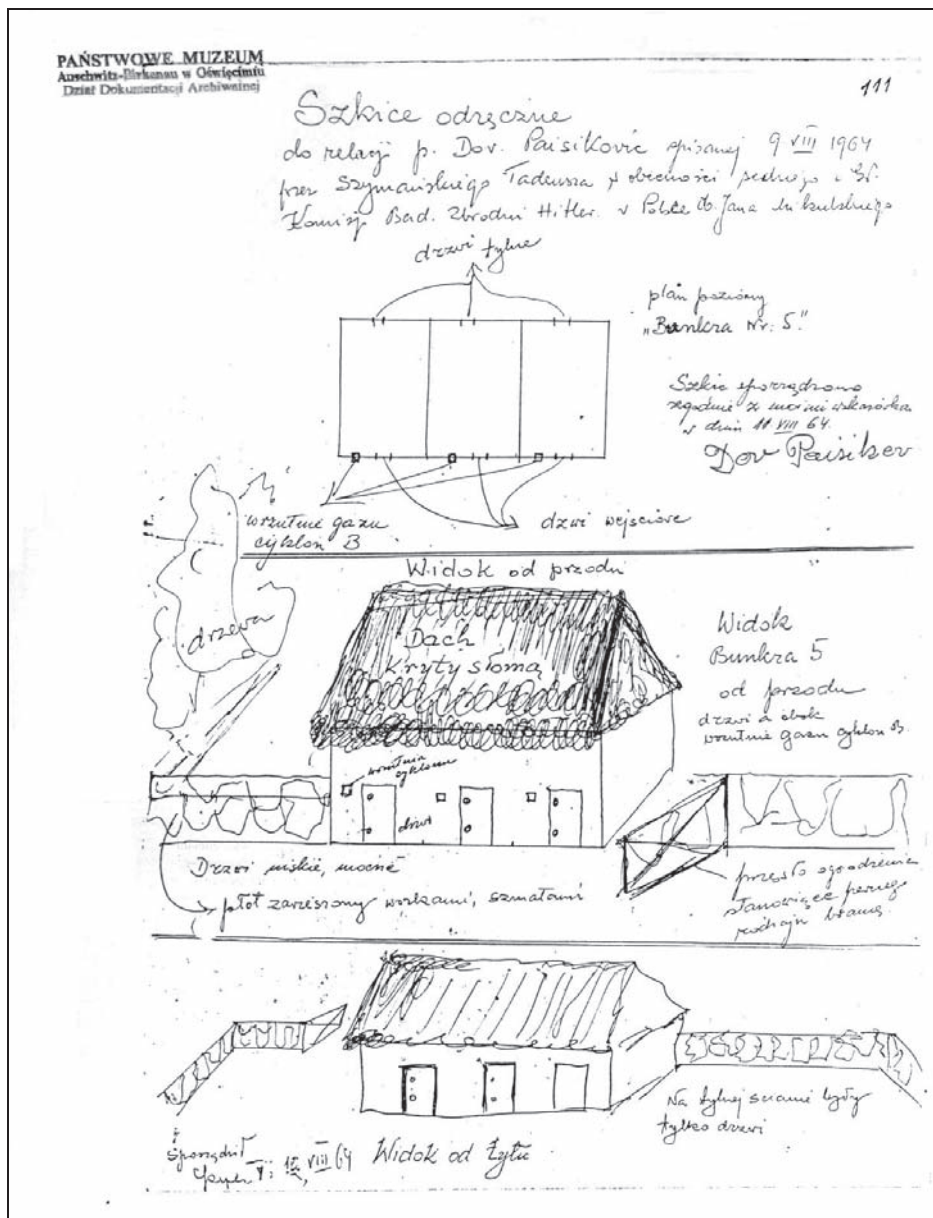 PAŃSTWOWE MUZEUM
Auschwitz-Birkenau w Oświęcimiu
Dział Dokumentacji Archiwalnej
111
Szkice odręczne
do relacji p. Dov. Paisiković spisanej 9 VIII 1964
przez Szymańskiego Tadeusza w obecności sędziego Gł.
Komisji Bad. Zbrodni Hitler. w Polsce Jana Mikulskiego
drzwi tylne
plan poziomy
„Bunkra Nr: 5."
Szkic sporządzono
zgodnie z moimi wskazówka
w dniu 11 VIII 64.
Dov Paisikov
wrzutnie gazu
cyklon B
drzwi wejściowe
Widok od przodu
drzewa
Dach
Kryty słomą
Widok
Bunkra 5
od przodu
drzwi a obok
wrzutnie gazu cyklon B.
wrzutnia
cyklonu
drzwi
Drzwi niskie, mocne
płot zawieszony workami, szmatami
przęsło ogrodzenia
stanowiące pewnego
rodzaju bramę
Na tylnej ścianie były
tylko drzwi
Sporządził
VIII 64 Widok od tyłu